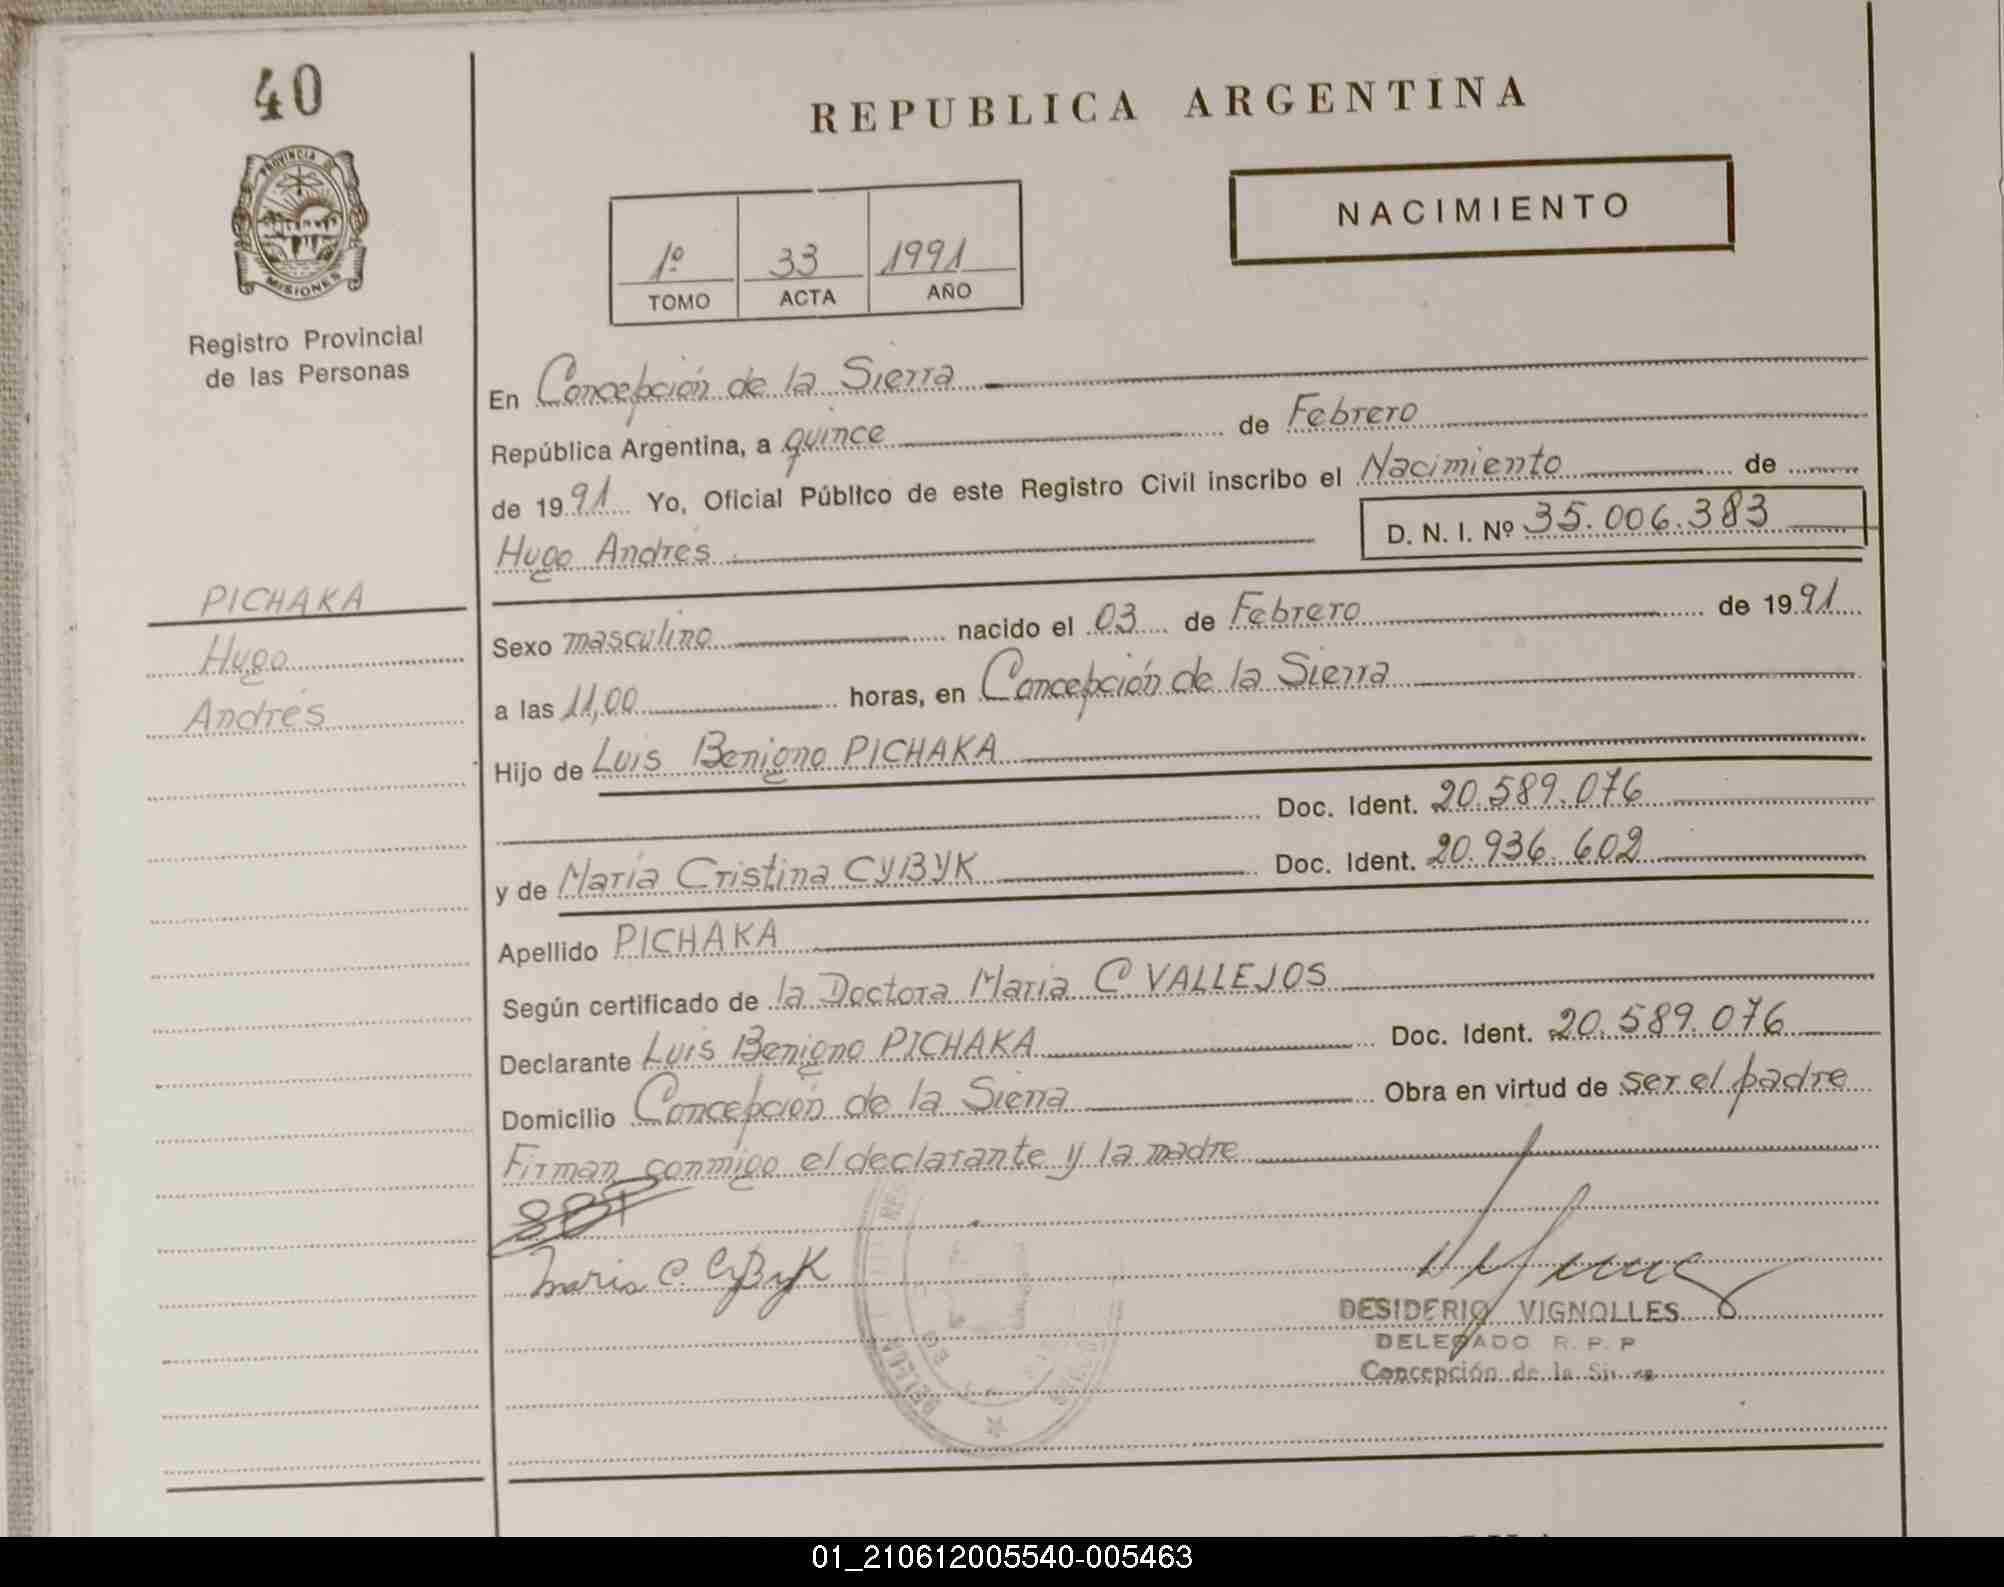 40
PROVINCIA DE
MISIONES
Registro Provincial
de las Personas
PICHAKA
Hugo
Andrés
REPUBLICA ARGENTINA
NACIMIENTO
1º 33 1991
TOMO ACTA AÑO
En Concepción de la Sierra
República Argentina, a quince de Febrero
de 1991 Yo, Oficial Público de este Registro Civil inscribo el Nacimiento de
Hugo Andrés D. N. I. Nº 35.006.383
Sexo masculino nacido el 03 de Febrero de 1991
a las 11,00 horas, en Concepción de la Sierra
Hijo de Luis Benigno PICHAKA
Doc. Ident. 20.589.076
y de María Cristina CYBYK Doc. Ident. 20.936.602
Apellido PICHAKA
Según certificado de la Doctora María C. VALLEJOS
Declarante Luis Benigno PICHAKA Doc. Ident. 20.589.076
Domicilio Concepción de la Sierra Obra en virtud de ser el padre
Firman conmigo el declarante y la madre
Maria C. CyByK
DESIDERIO VIGNOLLES
DELEGADO R. P. P
Concepción de la
01_210612005540-005463